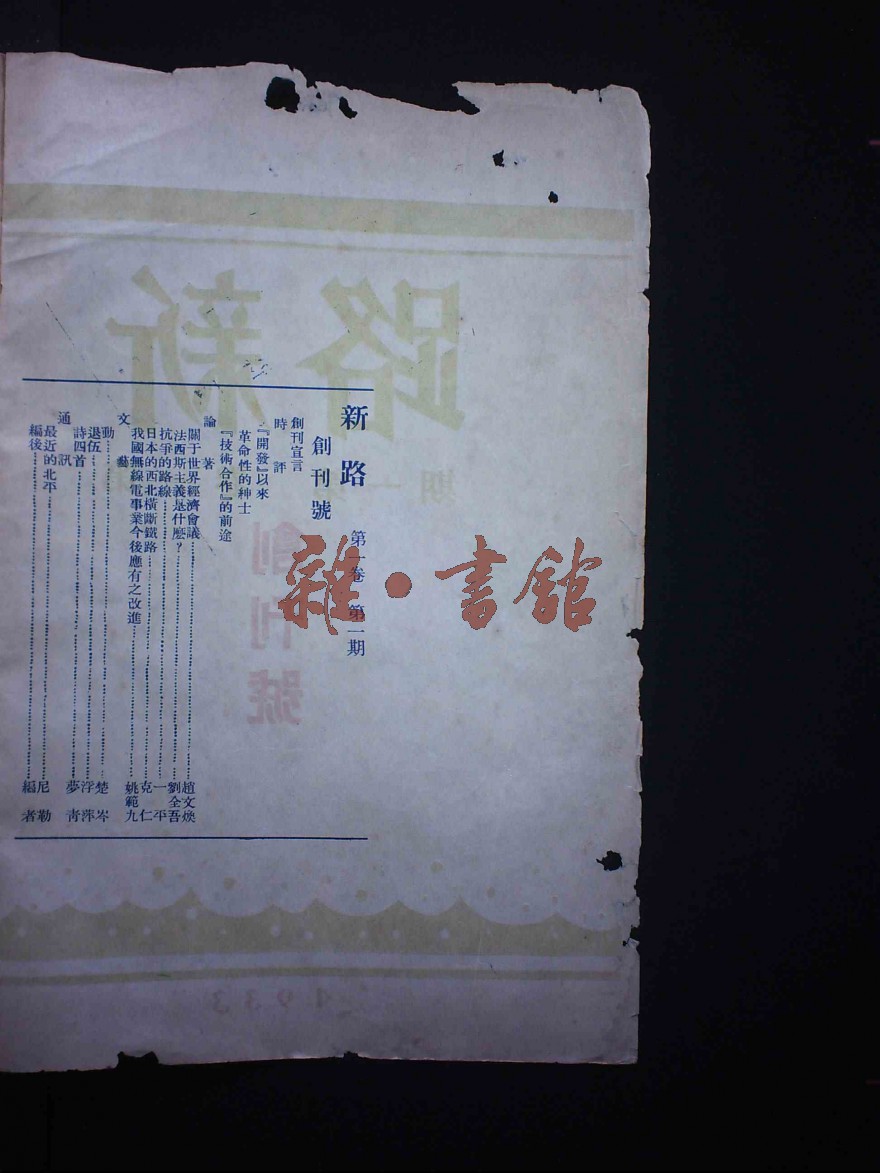 新路 第一卷 第一期
創刊號
創刊宣言
時評
『開發』以來
革命性的紳士
『技術合作』的前途
論著
關于世界經濟會議 趙文煥
法西斯主義是什麽? 劉全吾
抗爭的路線 一平
日本的西北橫斷鐵路 克仁
我國無線電事業今後應有之改進 姚範九
文藝
動 楚岑
退伍 浮萍
詩四首 夢青
通訊
最近的北平 尼勒
編後 編者
雜·書館
新路
創刊號
1933